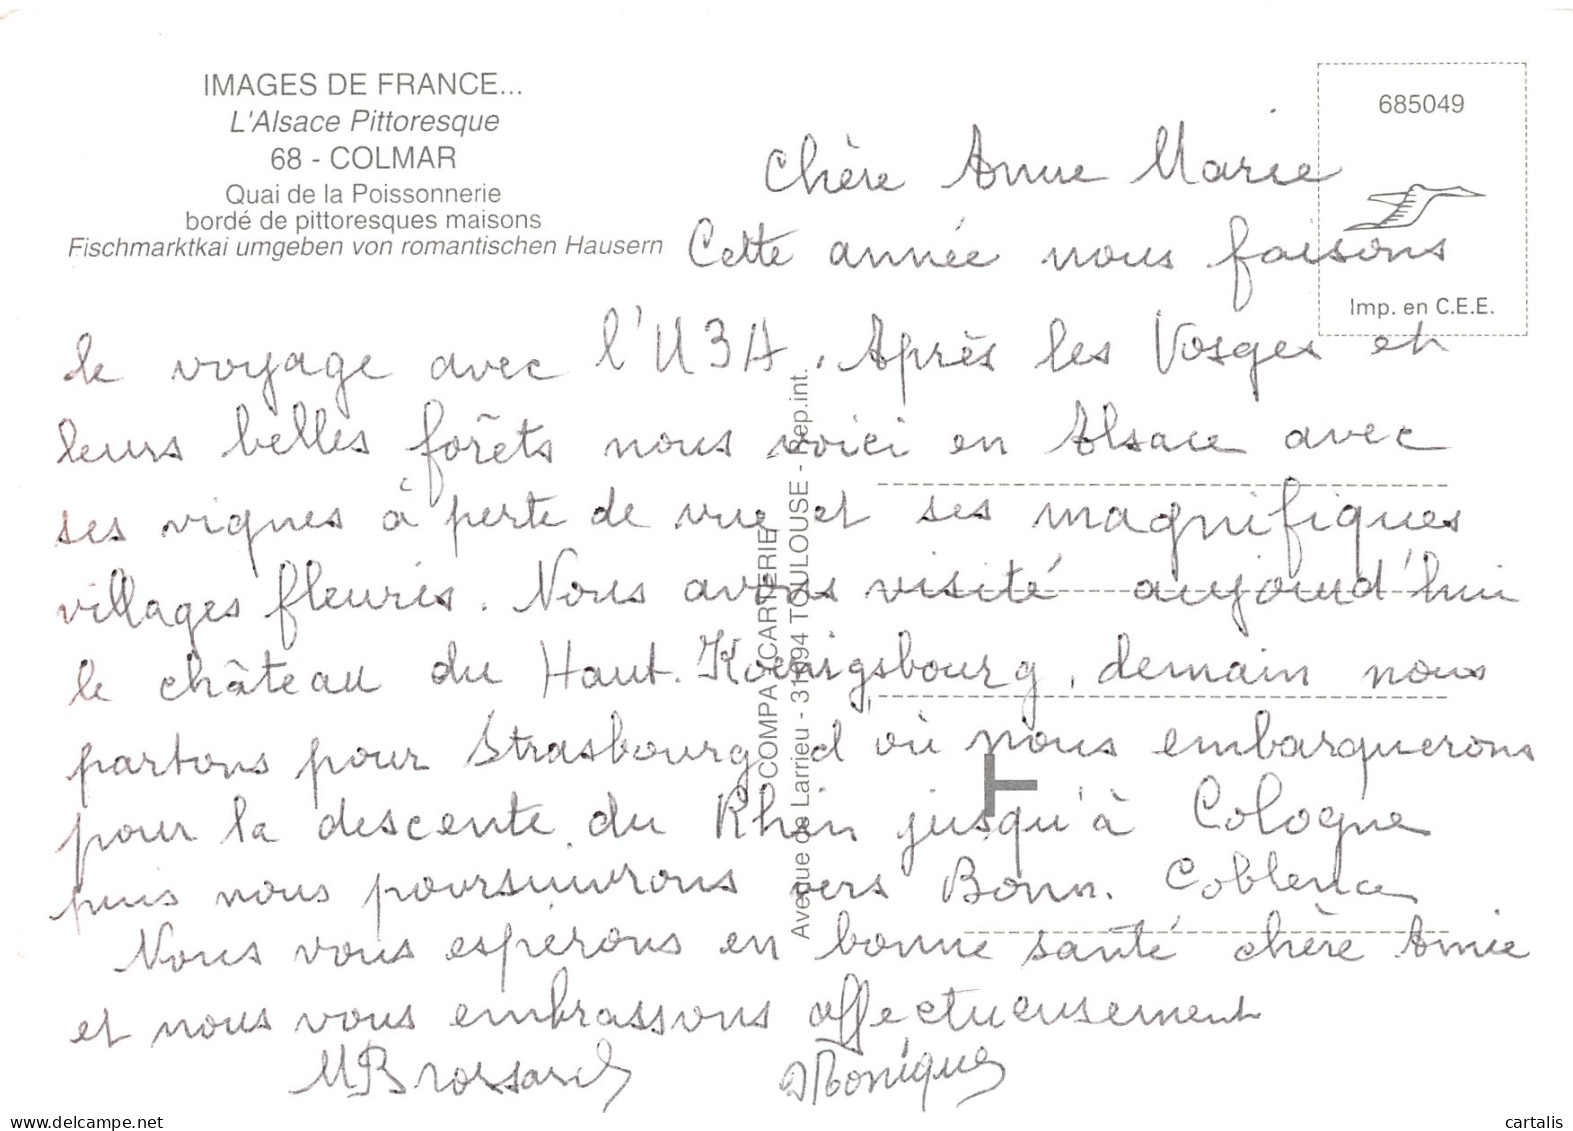 IMAGES DE FRANCE...
L'Alsace Pittoresque
68 - COLMAR
Quai de la Poissonnerie
bordé de pittoresques maisons
Fischmarktkai umgeben von romantischen Hausern
685049
Imp. en C.E.E.
Chère Anne Marie
Cette année nous faisons
le voyage avec l'U3A. Après les Vosges et
leurs belles forêts nous voici en Alsace avec
ses vignes à perte de vue et ses magnifiques
villages fleuris. Nous avons visité aujourd'hui
le château du Haut-Koenigsbourg, demain nous
partons pour Strasbourg d'où nous embarquerons
pour la descente du Rhin jusqu'à Cologne
puis nous poursuivrons vers Bonn. Coblence
Nous vous espérons en bonne santé chère Amie
et nous vous embrassons affectueusement
MBrossard Monique
COMPA CARTERIE
Avenue de Larrieu - 31094 TOULOUSE - Rep.int.
cartalis